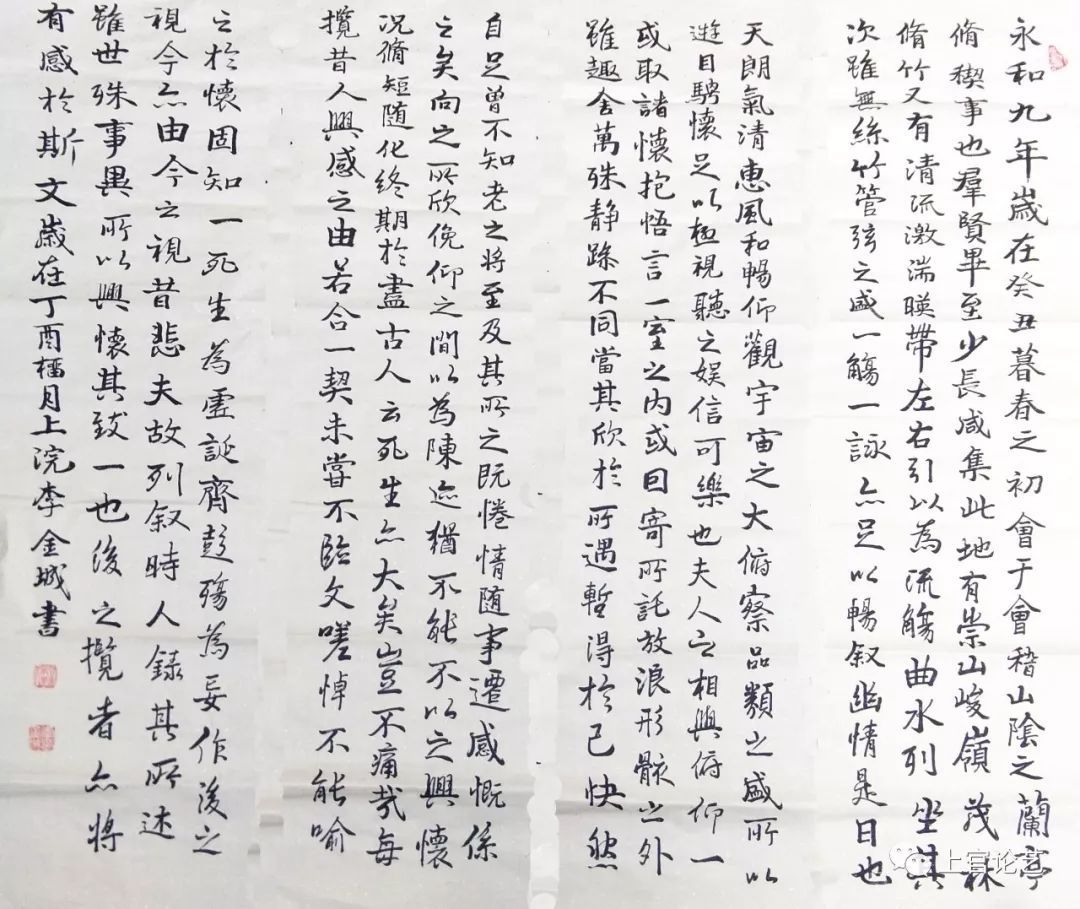 永和九年歲在癸丑暮春之初會于會稽山陰之蘭亭
脩稧事也羣賢畢至少長咸集此地有崇山峻嶺茂林
脩竹又有清流激湍暎帶左右引以為流觴曲水列坐其
次雖無絲竹管弦之盛一觴一詠亦足以暢叙幽情是日也
天朗氣清惠風和暢仰觀宇宙之大俯察品類之盛所以
遊目騁懷足以極視聽之娛信可樂也夫人之相與俯仰一
世或取諸懷抱悟言一室之內或因寄所託放浪形骸之外
雖趣舍萬殊静躁不同當其欣於所遇暫得於己快然
自足曾不知老之將至及其所之既惓情随事遷感慨係
之矣向之所欣俛仰之間以為陳迹猶不能不以之興懷
況脩短随化終期於盡古人云死生亦大矣豈不痛哉每
攬昔人興感之由若合一契未嘗不臨文嗟悼不能喻
之於懷固知一死生為虛誕齊彭殤為妄作後之
視今亦由今之視昔悲夫故列叙時人錄其所述
雖世殊事異所以興懷其致一也後之攬者亦將
有感於斯文歲在丁酉榴月上浣李金城書
上官论艺